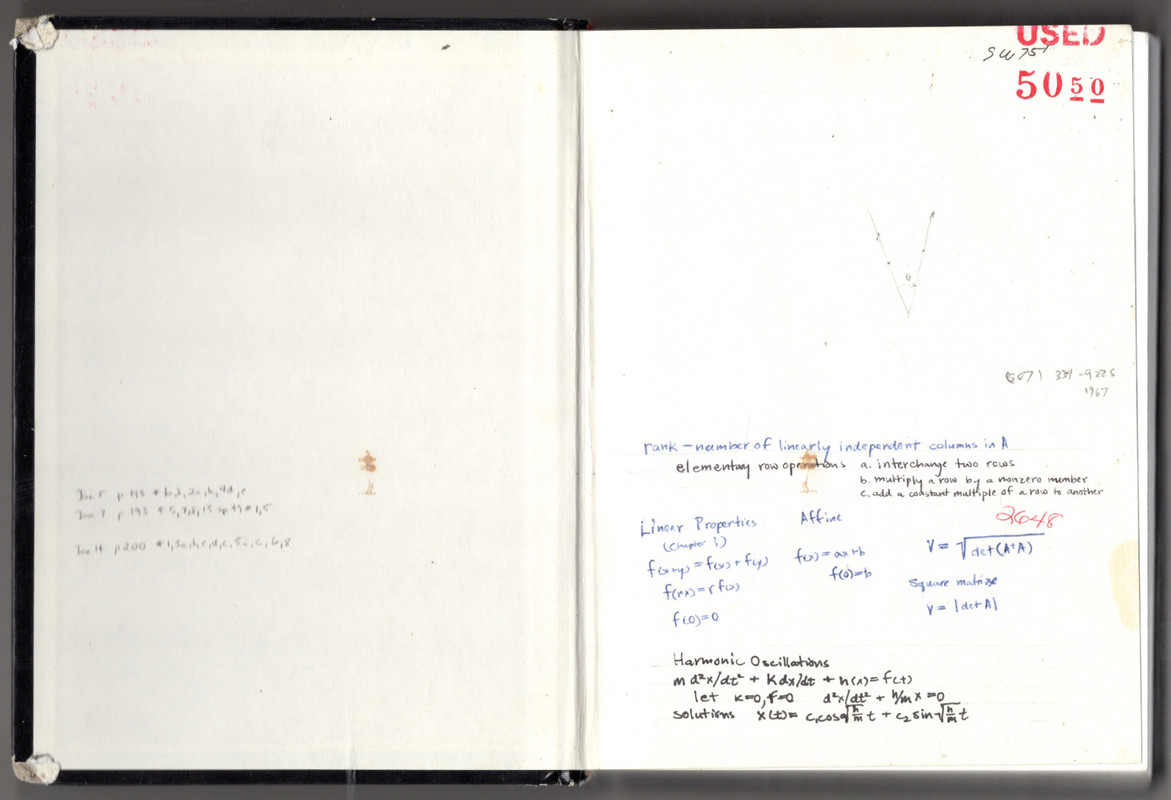 Jan 7 p 193 # 5, 7, 8, 13
Jan 14 p 200 # 1, 3a, b, c, d, e, 5a, c, 6, 8
USED
50 50
θ
334-9225
1967
rank - number of linearly independent columns in A
elementary row operations a. interchange two rows
b. multiply a row by a nonzero number
c. add a constant multiple of a row to another
2648
Linear Properties
(Chapter 3)
f(x+y) = f(x) + f(y)
f(rx) = r f(x)
f(0) = 0
Affine
f(x) = ax+b
f(0) = b
V = √det(AᵗA)
Square matrix
V = |det A|
Harmonic Oscillations
m d²x/dt² + k dx/dt + h(x) = f(t)
let k=0, f=0 d²x/dt² + h/m x = 0
solutions x(t) = c₁cos√(h/m) t + c₂ sin√(h/m) t